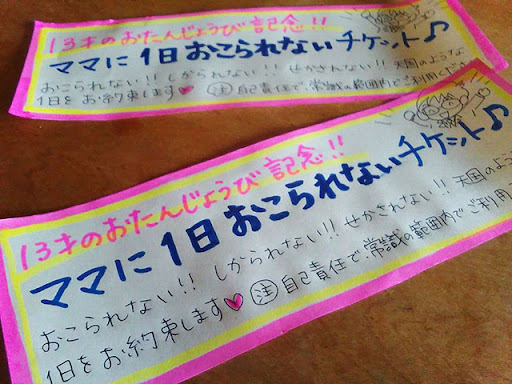 13才のおたんじょうび記念!!
ママに1日おこられないチケット♪
おこられない!! しかられない!! せかされない!! 天国のような
1日をお約束します♥ 注 自己責任で、常識の範囲内でご利用ください
13才のおたんじょうび記念!!
ママに1日おこられないチケット♪
おこられない!! しかられない!! せかされない!! 天国のよう
1日をお約束します♥ 注 自己責任で、常識の範囲内でご利用